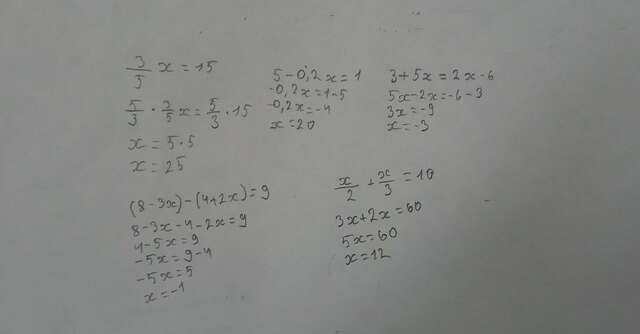 3/5 x = 15
5/3 · 3/5 x = 5/3 · 15
x = 5·5
x = 25
5-0,2x = 1
-0,2x = 1-5
-0,2x = -4
x = 20
3+5x = 2x-6
5x-2x = -6-3
3x = -9
x = -3
(8-3x)-(4+2x) = 9
8-3x-4-2x = 9
4-5x = 9
-5x = 9-4
-5x = 5
x = -1
x/2 + x/3 = 10
3x+2x = 60
5x = 60
x = 12